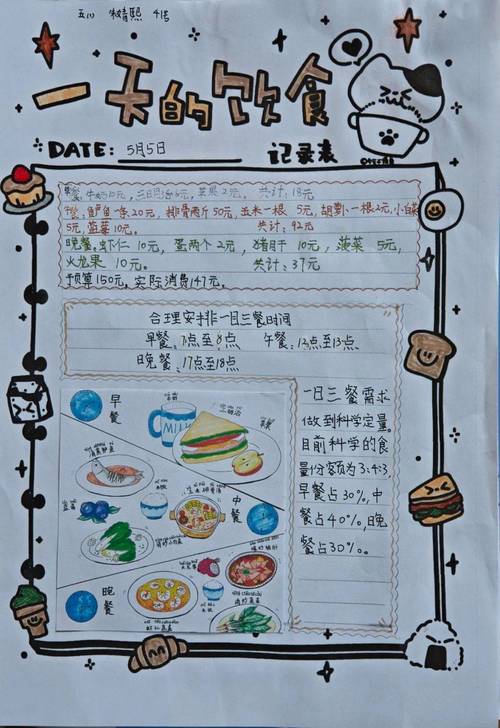 一天的饮食
DATE: 5月5日
记录表
早餐，牛奶10元，三明治6元，苹果2元。 共计，18元
午餐，鲈鱼一条20元，排骨两斤50元，玉米一根 5元，胡萝卜一根2元，小白菜
5元，蓝莓10元。 共计：92元
晚餐，虾仁 10元，蛋两个 2元，猪肝 10元，菠菜 5元，
火龙果 10元。 共计：37元
预算150元，实际消费147元。
合理安排一日三餐时间
早餐：7点至8点 午餐：12点至13点
晚餐：17点至18点
一日三餐需求
做到科学定量。
目前科学的食
量份额为3:4:3，
早餐占30%，中
餐占40%，晚
餐占30%。
早餐
MILK
中餐
晚餐